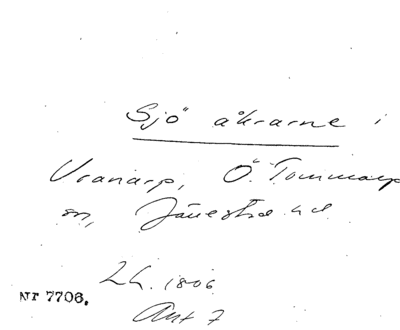 Sjö åkrarne i
Vranarp, Ö. Tommarp
sn, Järrestad hd
LL. 1806
Akt 7
Nr 7706.